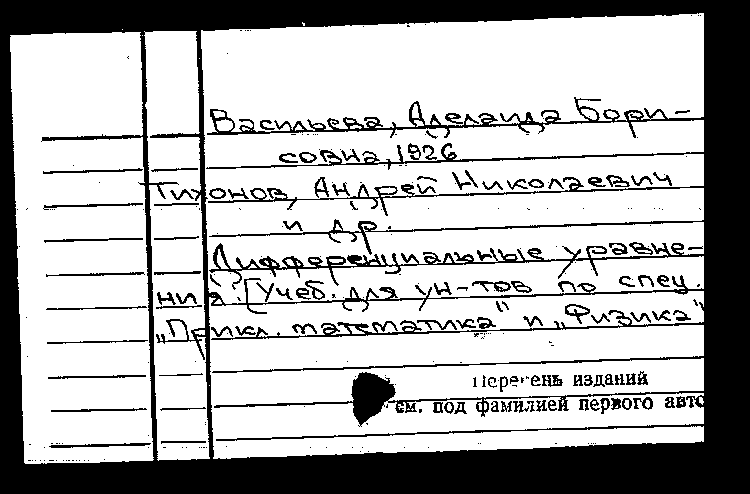 Васильева, Аделаида Бори-
совна, 1926
Тихонов, Андрей Николаевич
и др.
Дифференциальные уравне-
ния: [Учеб. для ун-тов по спец.
„Прикл. математика" и „Физика"
Перечень изданий
см. под фамилией первого авто